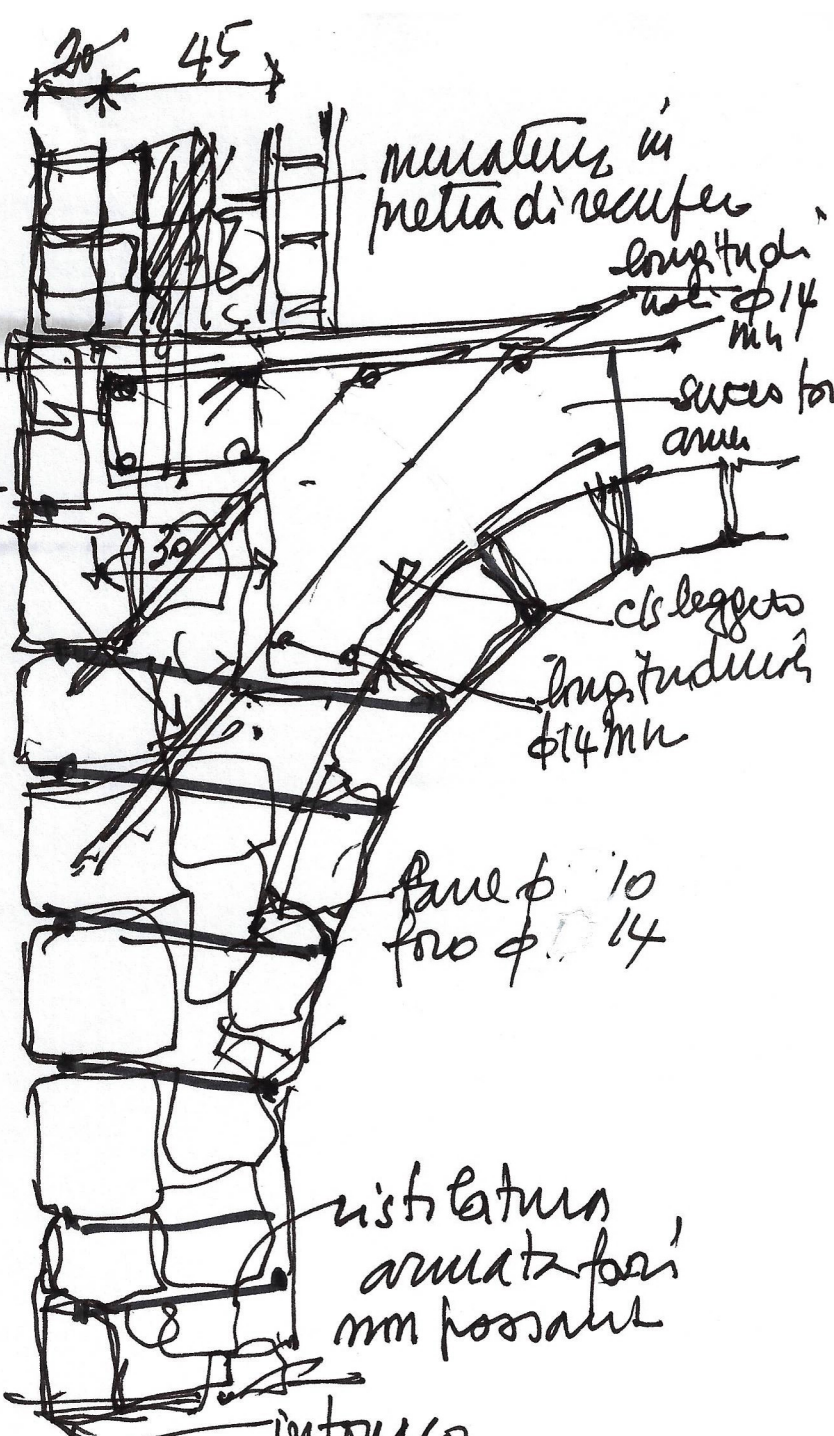 20 45
muratura in
pietra di recupero
longitudi
nali ϕ14
mm
30
cls leggero
longitudinali
ϕ14 mm
barre ϕ 10
foro ϕ 14
ristilatura
armata fori
non passanti
8
intonaco